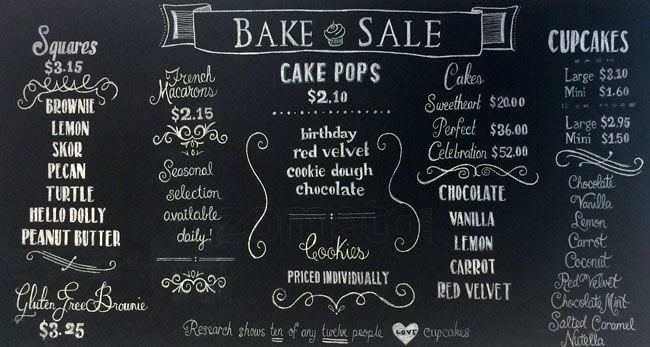 BAKE SALE
Squares
$3.15
BROWNIE
LEMON
SKOR
PECAN
TURTLE
HELLO DOLLY
PEANUT BUTTER
Gluten Free Brownie
$3.25
French
Macarons
$2.15
Seasonal
selection
available
daily!
CAKE POPS
$2.10
birthday
red velvet
cookie dough
chocolate
Cookies
PRICED INDIVIDUALLY
Cakes
Sweetheart $20.00
Perfect $36.00
Celebration $52.00
CHOCOLATE
VANILLA
LEMON
CARROT
RED VELVET
CUPCAKES
EACH
Large $3.10
Mini $1.60
OR MORE
Large $2.95
Mini $1.50
Chocolate
Vanilla
Lemon
Carrot
Coconut
Red Velvet
Chocolate Mint
Salted Caramel
Nutella
Research shows ten of any twelve people LOVE cupcakes
zomato